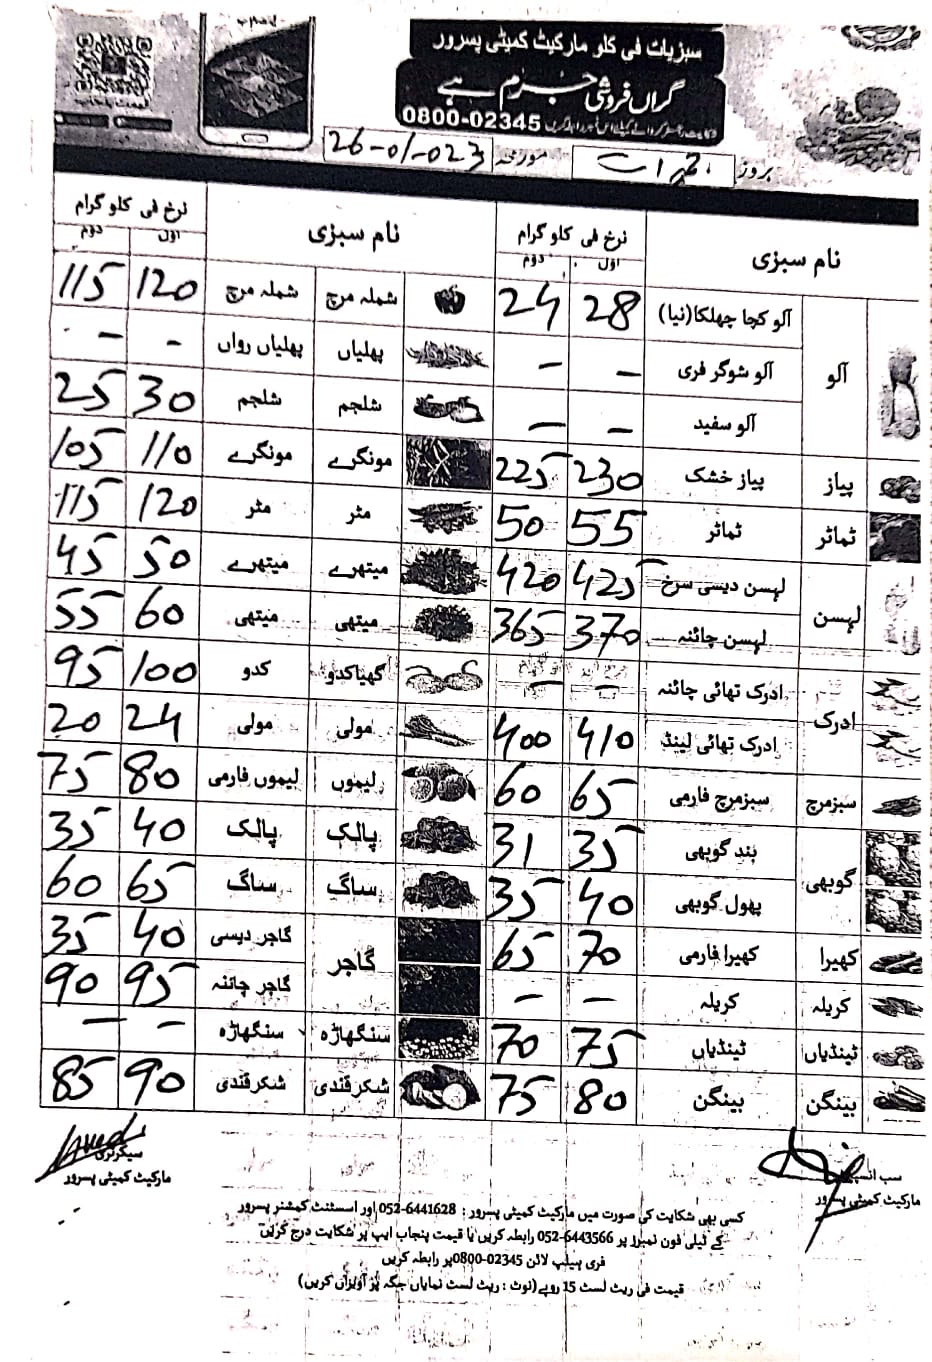 سبزیات فی کلو مارکیٹ کمیٹی پسرور
گراں فروشی جرم ہے
0800-02345
بروز جمعرات مورخہ 26-01-023
نام سبزی نرخ فی کلو گرام اول دوم
آلو آلو کچا چھلکا(نیا) 28 24
آلو شوگر فری – –
آلو سفید – –
پیاز پیاز خشک 230 225
ٹماٹر ٹماٹر 55 50
لہسن لہسن دیسی سرخ 425 420
لہسن چائنہ 370 365
ادرک ادرک تھائی چائنہ – –
ادرک تھائی لینڈ 410 400
سبزمرچ سبزمرچ فارمی 65 60
گوبھی بند گوبھی 35 31
پھول گوبھی 40 35
کھیرا کھیرا فارمی 70 65
کریلہ کریلہ – –
ٹینڈیاں ٹینڈیاں 75 70
بینگن بینگن 80 75
نام سبزی نرخ فی کلو گرام اول دوم
شملہ مرچ شملہ مرچ 120 115
پھلیاں پھلیاں رواں – –
شلجم شلجم 30 25
مونگرے مونگرے 110 105
مٹر مٹر 120 115
میتھرے میتھرے 50 45
میتھی میتھی 60 55
گھیاکدو کدو 100 95
مولی مولی 24 20
لیموں لیموں فارمی 80 75
پالک پالک 40 35
ساگ ساگ 65 60
گاجر گاجر دیسی 40 35
گاجر چائنہ 95 90
سنگھاڑہ سنگھاڑہ – –
شکرقندی شکرقندی 90 85
سب انسپکٹر
مارکیٹ کمیٹی پسرور
سیکرٹری
مارکیٹ کمیٹی پسرور
کسی بھی شکایت کی صورت میں مارکیٹ کمیٹی پسرور: 052-6441628 اور اسسٹنٹ کمشنر پسرور
کے ٹیلی فون نمبرز پر 052-6443566 رابطہ کریں یا قیمت پنجاب ایپ پر شکایت درج کرائیں
فری ہیلپ لائن 02345-0800پر رابطہ کریں
قیمت فی ریٹ لسٹ 15 روپے(نوٹ : ریٹ لسٹ نمایاں جگہ پر آویزاں کریں)